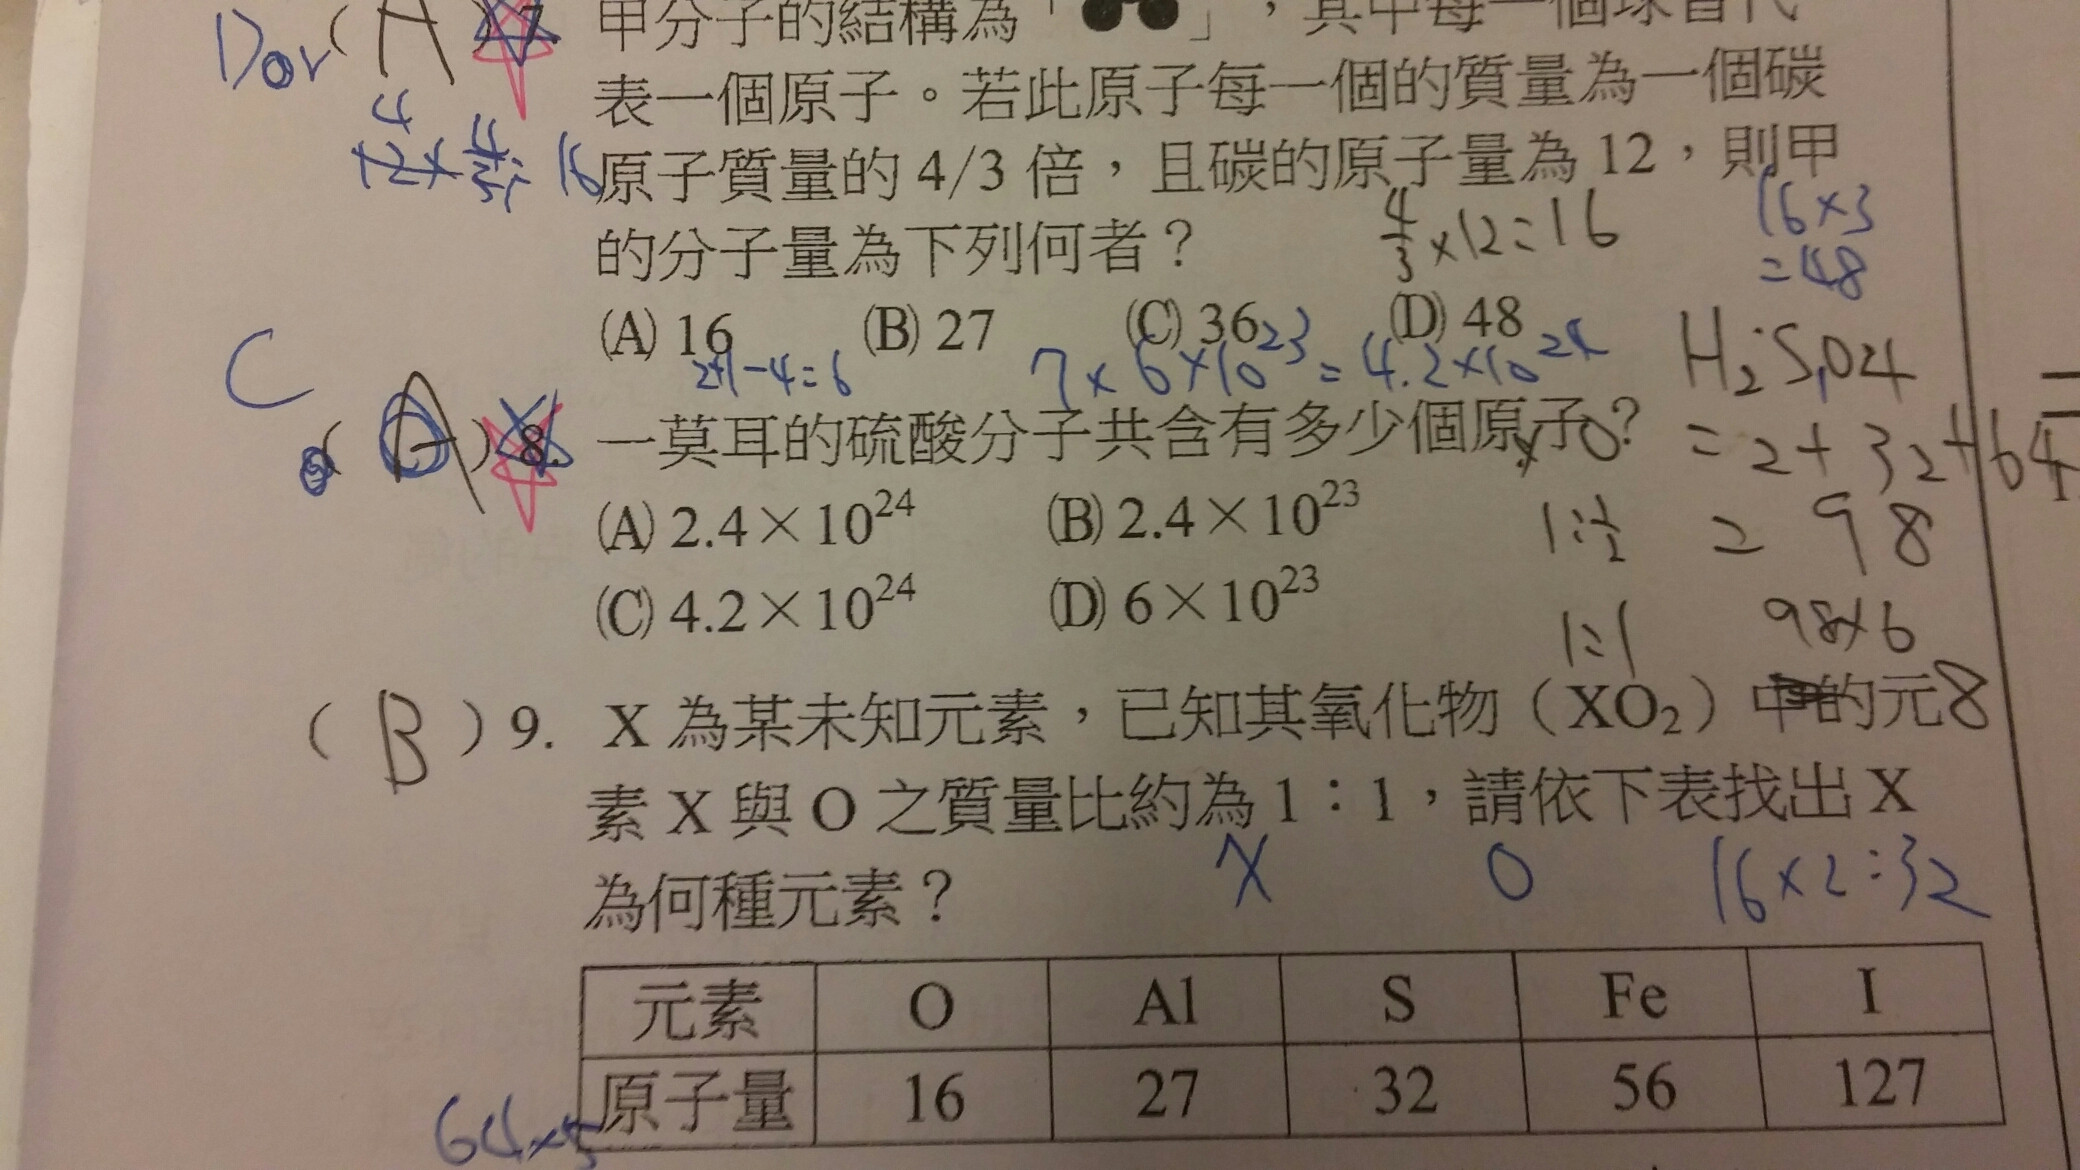 Dor ( A ) 7. 甲分子的結構為「」,其中每一個球皆代
表一個原子。若此原子每一個的質量為一個碳
原子質量的 4/3 倍,且碳的原子量為 12,則甲
的分子量為下列何者?
4/3×12=16
16×3
=48
16
(A) 16 (B) 27 (C) 36 (D) 48
7×6×10²³=4.2×10²⁴
H₂SO4
=2+32+64
=98
98×6
C ( A ) 8. 一莫耳的硫酸分子共含有多少個原子?
(A) 2.4×10²⁴ (B) 2.4×10²³
(C) 4.2×10²⁴ (D) 6×10²³
1:1/2
1:1
( B ) 9. X 為某未知元素,已知其氧化物(XO₂)中的元
8
素 X 與 O 之質量比約為 1:1,請依下表找出 X
為何種元素?
X O 16×2=32
元素 O Al S Fe I
原子量 16 27 32 56 127